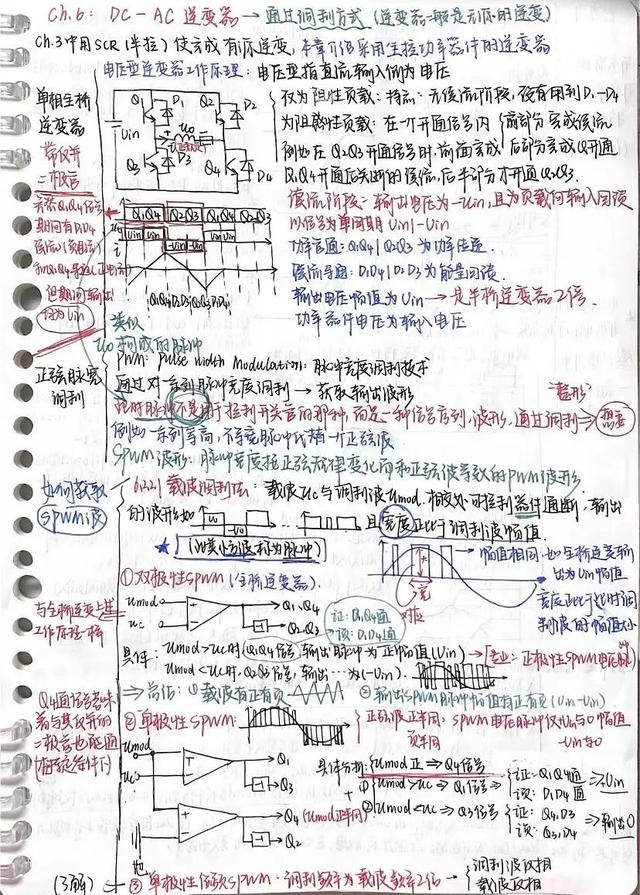 Ch.6: DC-AC 逆变器 → 通过调制方式 (逆变器一般是无源的逆变)
Ch.3中用SCR(半控)使之成有源逆变,本章介绍采用全控功率器件的逆变器
电压型逆变器工作原理:电压型指直流输入侧为电压
单相全桥
逆变器
Q1 D1 Q2 D2
Uin Uo
Q3 D3 Q4 D4
仅为阻性负载:特点:无续流阶段,没有用到D1-D4
为阻感性负载:在一个开通信号内 前部分完成续流
例如在Q2Q3开通信号时,前面完成 后部分完成Q开通
Q1Q4开通后关断的续流,后半部分才开通Q2Q3.
续流阶段:输出电压为-Uin,且为负载向输入回馈
以信号为单周期 Uin|-Uin
功率管通:Q1Q4|Q2Q3为功率传递.
续流导通:D1D4|D2D3为能量回馈.
输出电压幅值为Uin → 是半桥逆变器2倍.
功率器件电压为输入电压
Q1Q4 Q2Q3 Q1Q4 Q2Q3
Uin Uin -Uin -Uin Uin Uin
期间有D1D4
但期间输出
仅为Uin
类似
Uo 形成的脉冲
正弦脉宽
调制
PWM: Pulse width Modulation: 脉冲宽度调制技术
通过对一系列脉冲宽度调制 → 获取输出波形
此时脉冲不是用于控制开关管的那种,而是一种信号序列,波形,通过调制 → 想要
"整形"
例如一系列等高,不等宽脉冲代替一个正弦波
SPWM波形:脉冲宽度按正弦规律变化而和正弦波等效的PWM波形.
如何获取
SPWM波
6.2.1 载波调制法:载波Uc与调制波Umod,相交处可控制器件通断,输出
的波形如 且宽度正比于调制波幅值.
幅值相同也全桥逆变输
出为Uin幅值
宽度正比于此时调
制波的幅值大小
①双极性SPWM(全桥逆变器).
与全桥逆变上述
工作原理一样
Umod
Uc
Q1,Q4
Q2,Q3
证:Q1,Q4通
读:D1D4通
具体:Umod>Uc时(Q1Q4信号,输出脉冲为正幅值(Uin)
Umod<Uc时,Q2Q3信号,输出...为(-Uin).
⇒总结:①载波有正有负 ②输出SPWM脉冲幅值有正有负(Uin-Uin)
②单极性SPWM:
正弦波正半周:SPWM电压脉冲仅Uin与0幅值
负半周 -Uin与0
Umod
Uc
Q1
Q3
Q4 (Umod正半周)
Q2
具体分析:Umod正 → Q4信号
①Umod>Uc → Q1信号 证:Q1Q4通 读:D1D4通 ⇒Uin
②Umod<Uc → Q3信号 证:Q4,D3 读:Q3,D4 ⇒输出0
③单极性倍频SPWM:调制频率为载波频率2倍 → 调制波反相
载波反相
(了解)